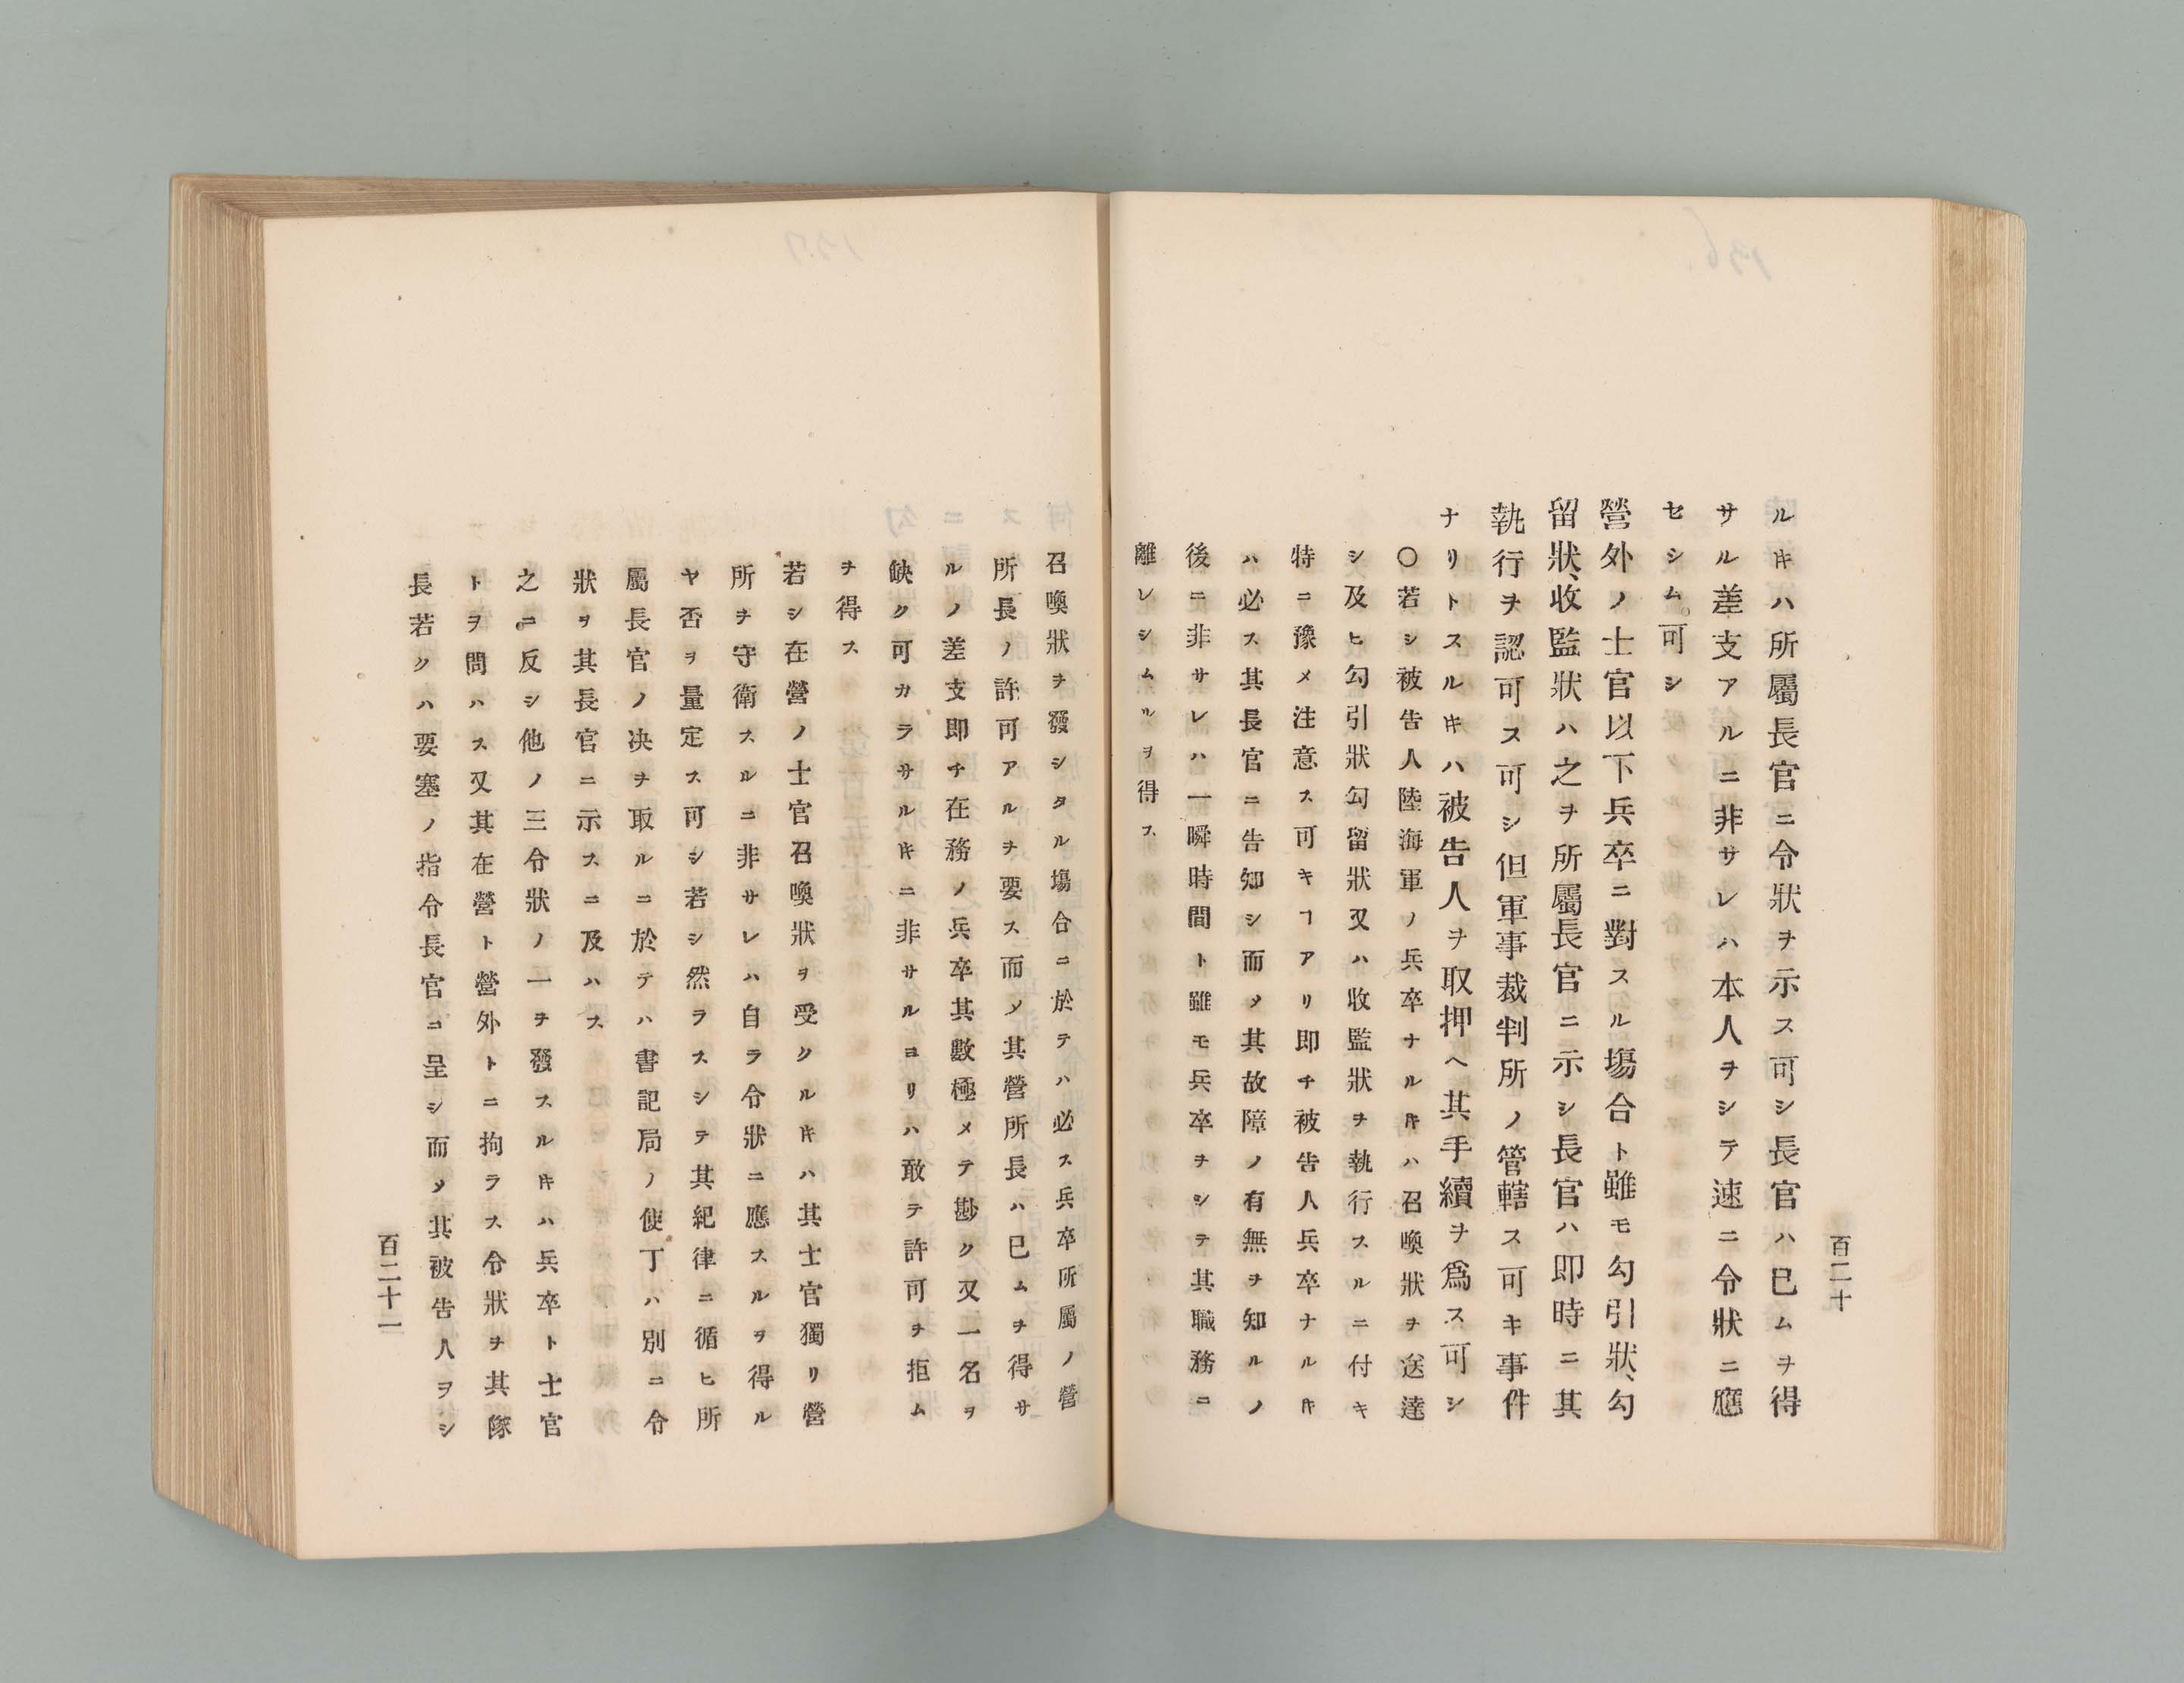 百二十
ルキハ所屬長官ニ令狀ヲ示ス可シ長官ハ已ムヲ得
サル差支アルニ非サレハ本人ヲシテ速ニ令狀ニ應
セシム。可シ
營外ノ士官以下兵卒ニ對スル塲合ト雖モ勾引狀、勾
留狀、收監狀ハ之ヲ所屬長官ニ示シ長官ハ即時ニ其
執行ヲ認可ス可シ但軍事裁判所ノ管轄ス可キ事件
ナリトスルキハ被告人ヲ取押ヘ其手續ヲ爲ス可シ
〇若シ被告人陸海軍ノ兵卒ナルキハ召喚狀ヲ送達
シ及ヒ勾引狀勾留狀又ハ收監狀ヲ執行スルニ付キ
特ニ豫メ注意ス可キヿアリ即チ被告人兵卒ナルキ
ハ必ス其長官ニ告知シ而〆其故障ノ有無ヲ知ルノ
後ニ非サレハ一瞬時間ト雖モ兵卒ヲシテ其職務ニ
離レシムルヲ得ス
召喚狀ヲ發シタル塲合ニ於テハ必ス兵卒所屬ノ營
所長ノ許可アルヲ要ス而〆其營所長ハ已ムヲ得サ
ルノ差支即チ在務ノ兵卒其數極メテ尠ク又一名ヲ
缺ク可カラサルキニ非サルヨリハ敢テ許可ヲ拒ム
ヲ得ス
若シ在營ノ士官召喚狀ヲ受クルキハ其士官獨リ營
所ヲ守衛スルニ非サレハ自ラ令狀ニ應スルヲ得ル
ヤ否ヲ量定ス可シ若シ然ラスシテ其紀律ニ循ヒ所
屬長官ノ决ヲ取ルニ於テハ書記局ノ使丁ハ別ニ令
狀ヲ其長官ニ示スニ及ハス
之ニ反シ他ノ三令狀ノ一ヲ發スルキハ兵卒ト士官
トヲ問ハス又其在營ト營外トニ拘ラス令狀ヲ其隊
長若クハ要塞ノ指令長官ニ呈シ而〆其被告人ヲシ
百二十一